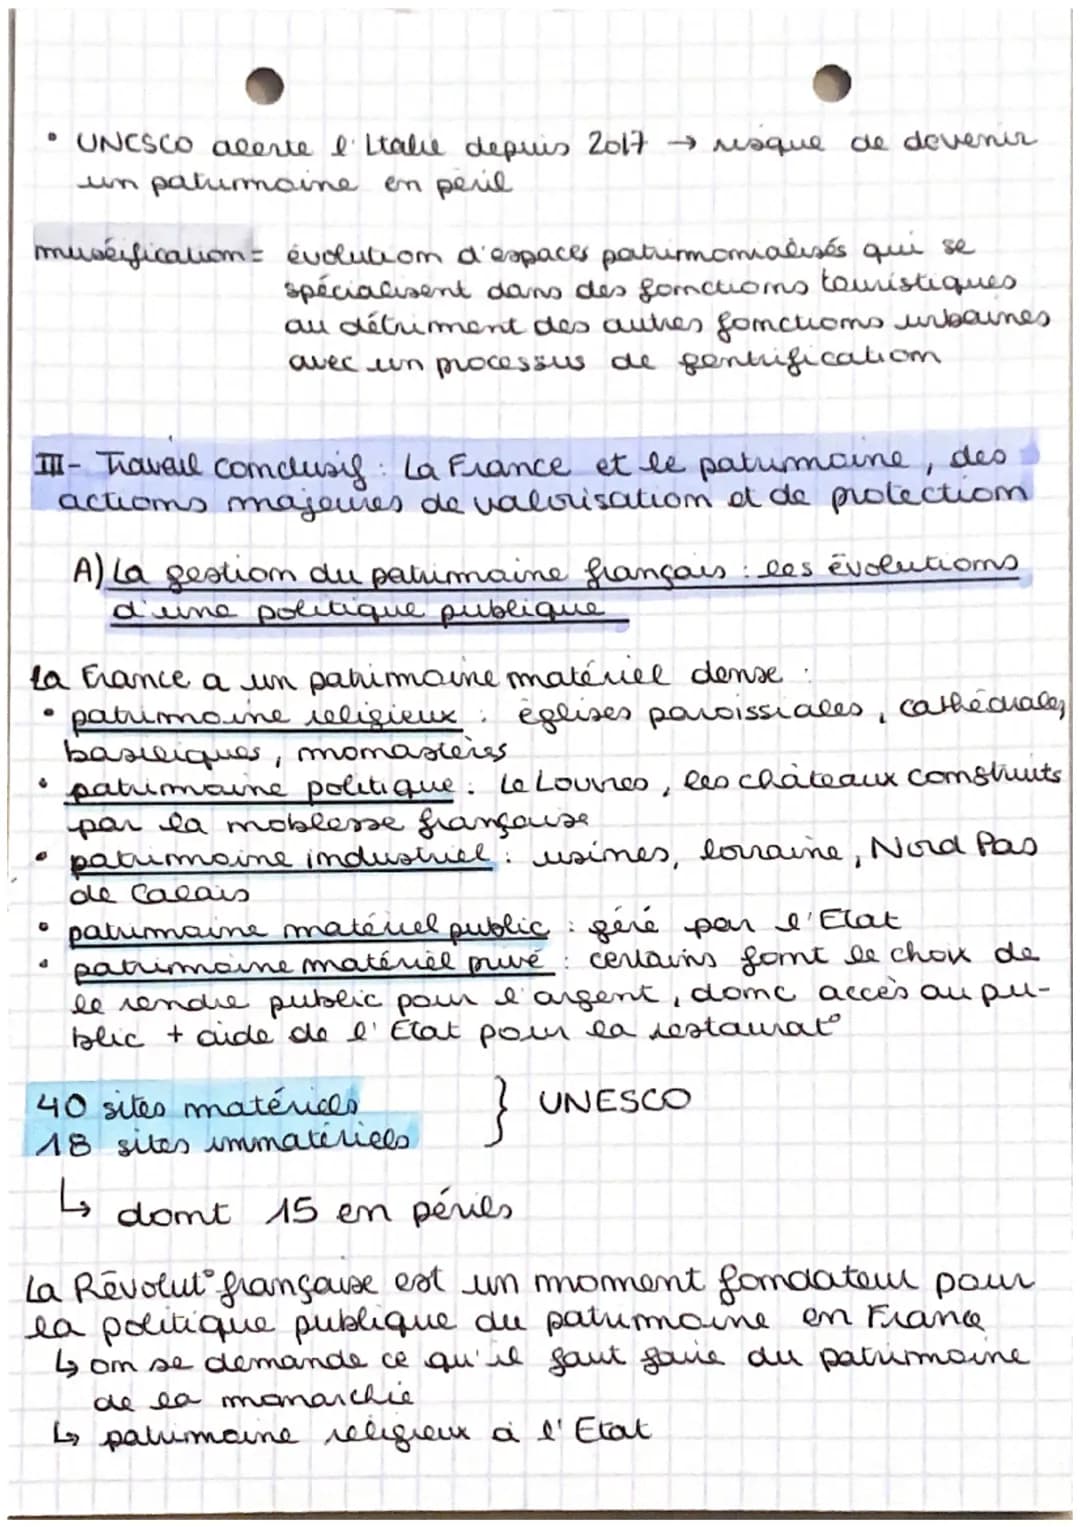 • UNESCO alerte l'Italie depuis 2017 → risque de devenir
un patrimoine en péril
muséification = évolution d'espaces patrimonialisés qui se
spécialisent dans des fonctions touristiques
au détriment des autres fonctions urbaines
avec un processus de gentrification
III- Travail conclusif : La France et le patrimoine, des
actions majeures de valorisation et de protection
A) La gestion du patrimoine français : les évolutions
d'une politique publique
La France a un patrimoine matériel dense :
• patrimoine religieux : églises paroissiales, cathédrales,
basiliques, monastères
• patrimoine politique : Le Louvres, les châteaux construits
par la noblesse française
• patrimoine industriel : usines, lorraine, Nord Pas
de Calais
• patrimoine matériel public : géré par l'Etat
• patrimoine matériel privé : certains font le choix de
le rendre public pour l'argent, donc accès au pu-
blic + aide de l'Etat pour la restaurat°
40 sites matériels } UNESCO
18 sites immatériels
↳ dont 15 en périls
La Révolut° française est un moment fondateur pour
la politique publique du patrimoine en France
↳ on se demande ce qu'il faut faire du patrimoine
de la monarchie
↳ patrimoine religieux à l'Etat